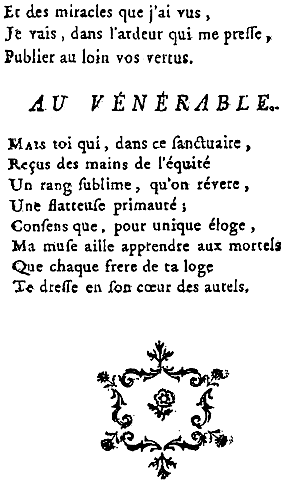 Et des miracles que j'ai vus,
Je vais, dans l'ardeur qui me preſſe,
Publier au loin vos vertus.
AU VÉNÉRABLE.
MAIS toi qui, dans ce ſanctuaire,
Reçus des mains de l'équité
Un rang ſublime, qu'on révere,
Une flatteuſe primauté;
Conſens que, pour unique éloge,
Ma muſe aille apprendre aux mortels
Que chaque frere de ta loge
Te dreſſe en ſon cœur des autels.